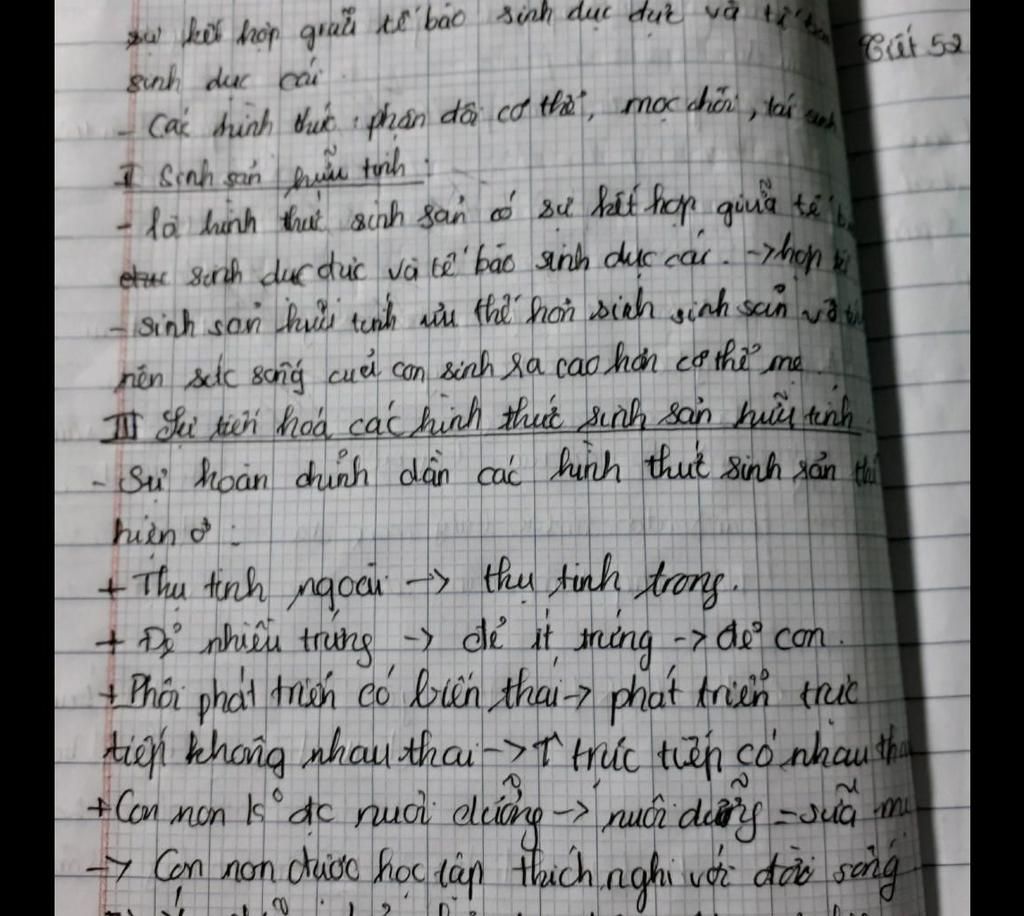 sự kết hợp giữa tế bào sinh dục đực và tế
Tiết 52
sinh dục cái.
- Các hình thức: phân đôi cơ thể, mọc chồi, tái sinh
II Sinh sản hữu tính:
- Là hình thức sinh sản có sự kết hợp giữa tế b
sinh dục đực và tế bào sinh dục cái. → hợp tử
- sinh sản hữu tính ưu thế hơn sinh sinh sản vô tí
nên sức sống của con sinh ra cao hơn cơ thể mẹ.
III Sự tiến hoá các hình thức sinh sản hữu tính
- Sự hoàn chỉnh dần các hình thức sinh sản thể
hiện ở :
+ Thụ tinh ngoài → thụ tinh trong.
+ Đẻ nhiều trứng → đẻ ít trứng → đẻ con.
+ Phôi phát triển có biến thái → phát triển trực
tiếp không nhau thai → ↑ trực tiếp có nhau thai
+ Con non k° đc nuôi dưỡng → nuôi dưỡng = sữa mẹ
→ Con non được học tập thích nghi với đời sống